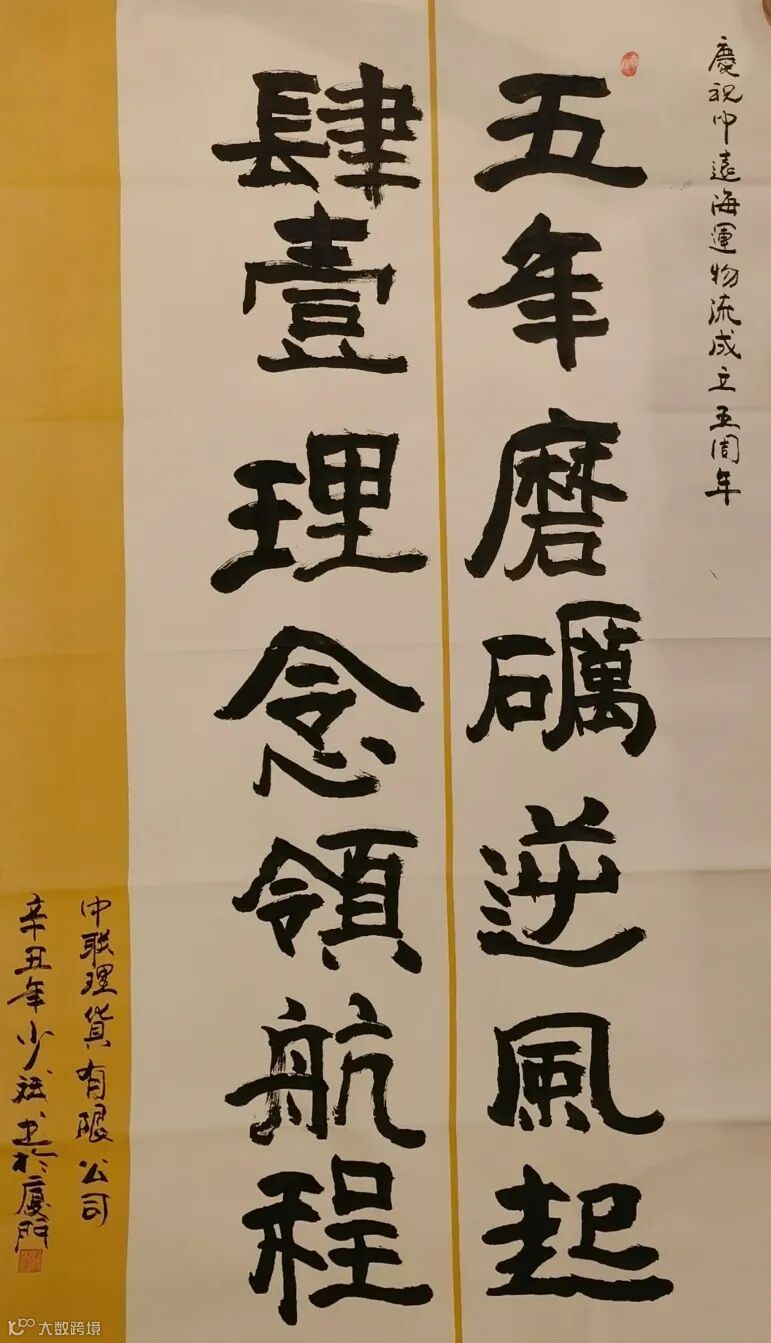 慶祝中遠海運物流成立五周年
五年磨礪逆風起
肆壹理念領航程
中联理貨有限公司
辛丑年少斌书於厦门
大数跨境